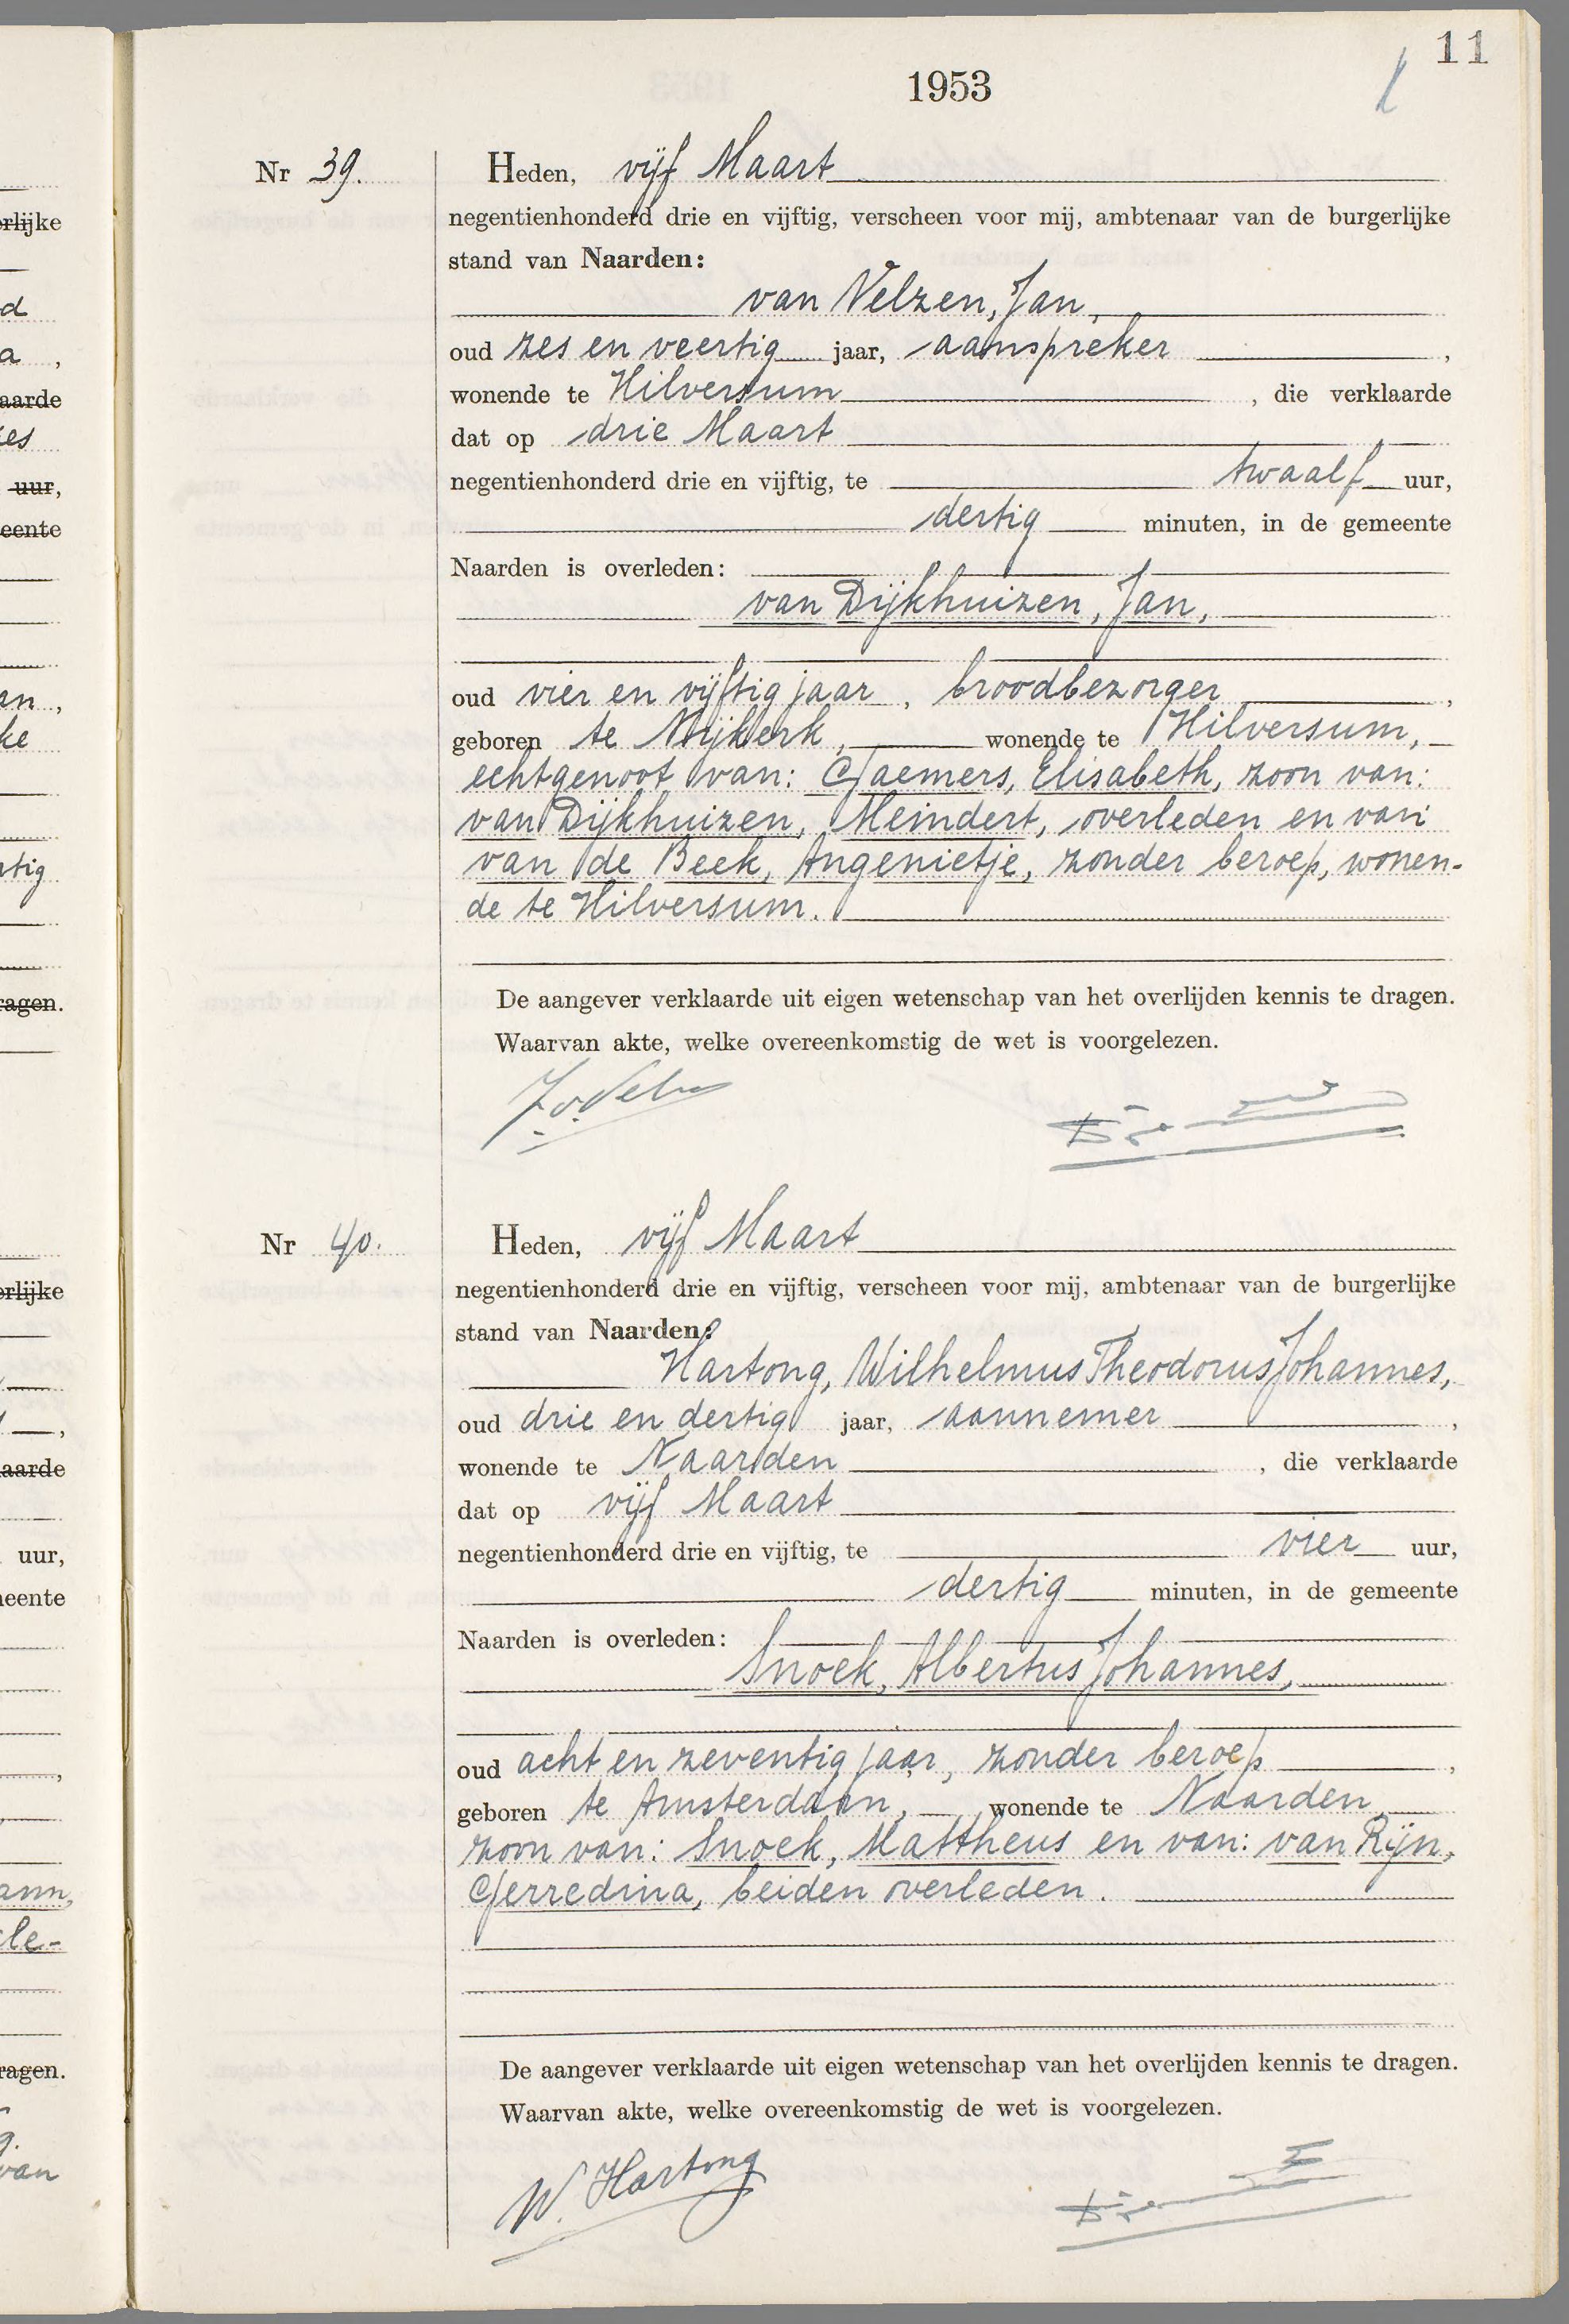 11
1953
Nr 39.
Heden, vijf Maart
negentienhonderd drie en vijftig, verscheen voor mij, ambtenaar van de burgerlijke
stand van Naarden:
van Velzen, Jan,
oud zes en veertig jaar, aanspreker,
wonende te Hilversum, die verklaarde
dat op drie Maart
negentienhonderd drie en vijftig, te twaalf uur,
dertig minuten, in de gemeente
Naarden is overleden:
van Dijkhuizen, Jan,
oud vier en vijftig jaar, broodbezorger,
geboren te Nijkerk, wonende te Hilversum,
echtgenoot van: Gaemers, Elisabeth, zoon van:
van Dijkhuizen, Meindert, overleden en van
van de Beek, Angenietje, zonder beroep, wonen-
de te Hilversum.
De aangever verklaarde uit eigen wetenschap van het overlijden kennis te dragen.
Waarvan akte, welke overeenkomstig de wet is voorgelezen.
Nr 40.
Heden, vijf Maart
negentienhonderd drie en vijftig, verscheen voor mij, ambtenaar van de burgerlijke
stand van Naarden:
Hartong, Wilhelmus Theodorus Johannes,
oud drie en dertig jaar, aannemer,
wonende te Naarden, die verklaarde
dat op vijf Maart
negentienhonderd drie en vijftig, te vier uur,
dertig minuten, in de gemeente
Naarden is overleden:
Snoek, Albertus Johannes,
oud acht en zeventig jaar, zonder beroep,
geboren te Amsterdam, wonende te Naarden,
zoon van: Snoek, Mattheus en van: van Rijn,
Gerredina, beiden overleden.
De aangever verklaarde uit eigen wetenschap van het overlijden kennis te dragen.
Waarvan akte, welke overeenkomstig de wet is voorgelezen.
W. Hartong